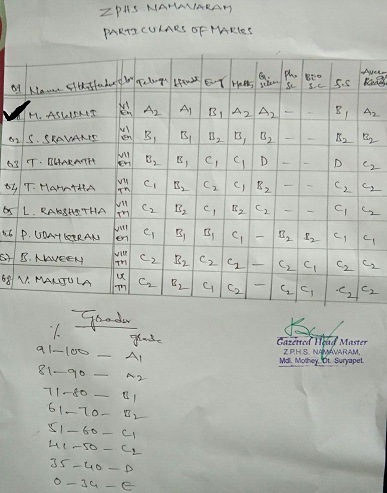 Z.P.H.S. NAMAVARAM
PARTICULARS OF MARKS
Name of the Student Class Telugu Hindi Eng Maths G. Science Phy Sc. Bio S.C S.S
M. ASWINI VI EM A2 A1 B1 A2 A2 - - B1 A2
02 S. SRAVANI VII EM B1 B1 B2 B1 B2 - - B2 B2
03 T. BHARATH VII EM B2 B1 C1 C1 D - - D C2
04 T. MAMATHA VII TM C1 B2 C2 C1 B2 - - C2 C2
05 L. RAKSHITHA VII TM C2 B1 C1 B2 C2 - - C1 C2
06 P. UDAY KIRAN VIII EM C1 B1 B1 C1 - B2 B2 C1 C1
07 B. NAVEEN VIII TM C2 B2 C2 C2 - C2 C1 C2 C2
08 V. MANJULA IX TM C2 B2 C1 C2 - C2 C1 C2 C2
Grades
% grade
91-100 - A1
81-90 - A2
71-80 - B1
61-70 - B2
51-60 - C1
41-50 - C2
35-40 - D
0-34 - E
Gazetted Head Master
Z.P.H.S. NAMAVARAM,
Mdl. Mothey, Dt. Suryapet.